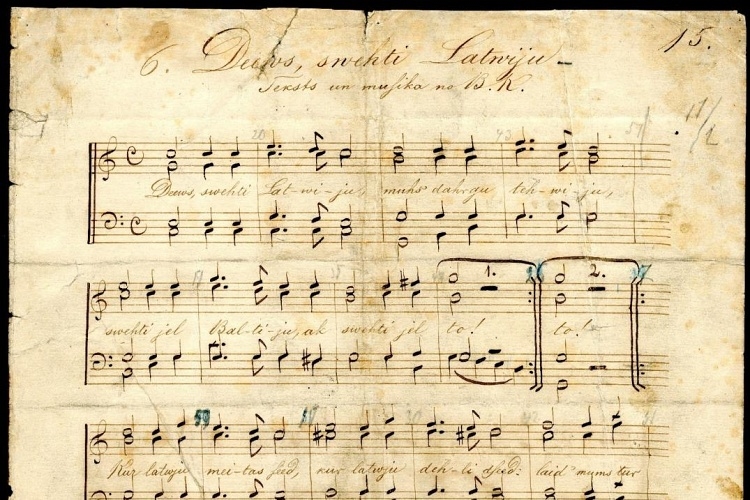 15.
6. Deews, swehti Latwiju
Teksts un musika no B. K.
11/2
Deews, swehti Lat-wi-ju, muhs' dahrgo teh-wi-ju,
1. 2.
swehti jel Bal-ti-ju, ak swehti jel to! to!
Kur latwju mei-tas seed, kur latwju deh-li dseed: laid mums tur